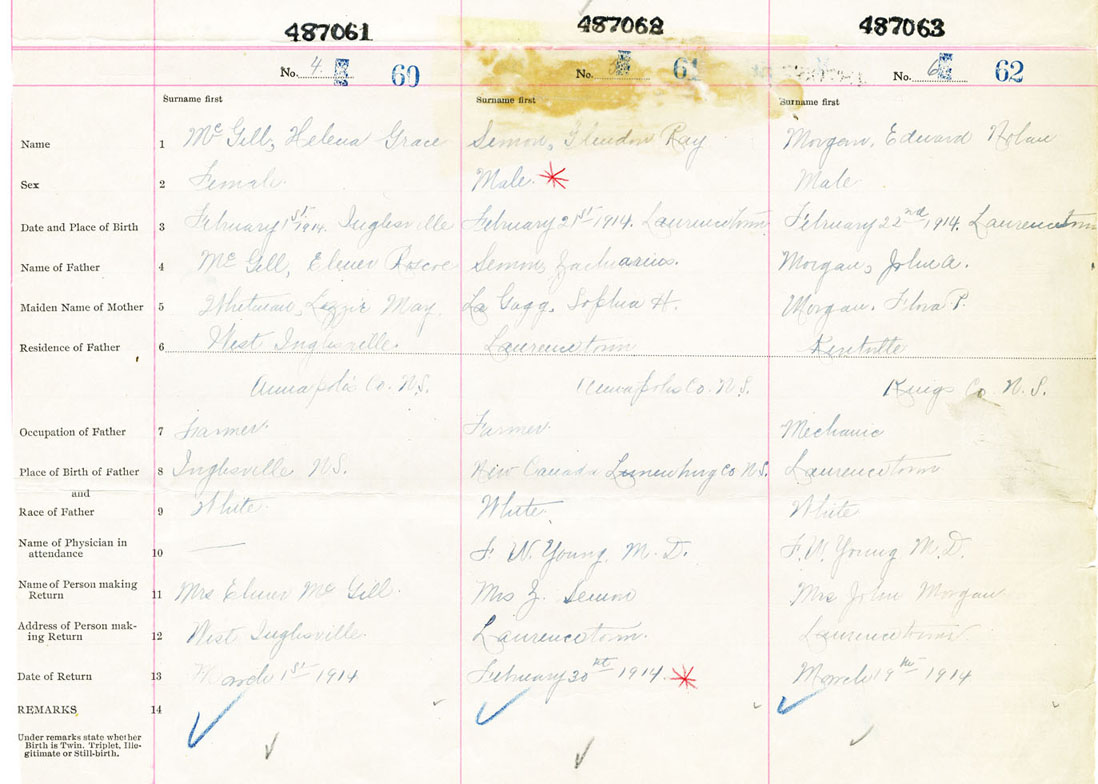 487061 487062 487063
No. 4. 60 No. 61 No. 6 62
Surname first Surname first Surname first
Name 1 Mc Gill, Helena Grace Semon, Glendon Ray Morgan, Edward Nolan
Sex 2 Female Male Male
Date and Place of Birth 3 February 1st 1914. Inglesville February 21st 1914. Laurencetown February 22nd 1914. Laurencetown
Name of Father 4 Mc Gill, Elmer Roscoe Semon, Zacharius. Morgan, John A.
Maiden Name of Mother 5 Whitman, Lizzie May. Sophia H. Morgan, Flora P.
Residence of Father 6 West Inglesville. Laurencetown Kentville
Annapolis Co. N.S. Annapolis Co. N.S. Kings Co. N.S.
Occupation of Father 7 Farmer Farmer Mechanic
Place of Birth of Father 8 Inglesville N.S. New Canada Lunenburg Co N.S. Laurencetown
and
Race of Father 9 White White White
Name of Physician in
attendance 10 — F. W. Young, M.D. F. W. Young M.D.
Name of Person making
Return 11 Mrs Elmer Mc Gill. Mrs Z. Semon Mrs John Morgan
Address of Person mak-
ing Return 12 West Inglesville. Laurencetown. Laurencetown
Date of Return 13 March 1st 1914 February 30th 1914 March 19th 1914
REMARKS 14
Under remarks state whether
Birth is Twin. Triplet, Ille-
gitimate or Still-birth.